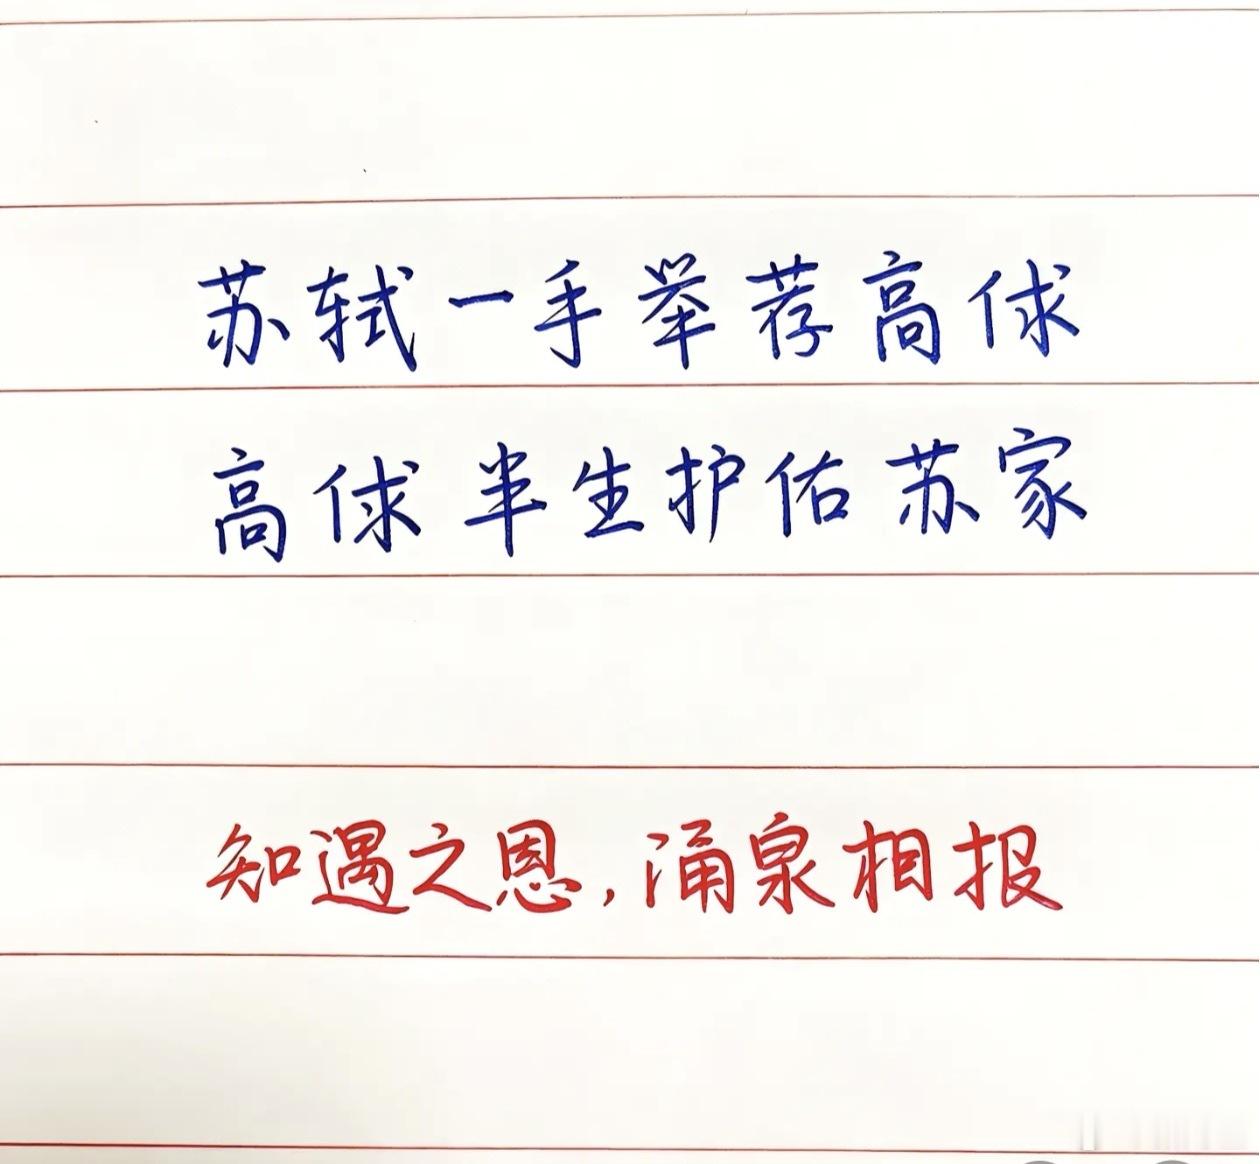 苏轼一手举荐高俅
高俅半生护佑苏家
知遇之恩,涌泉相报